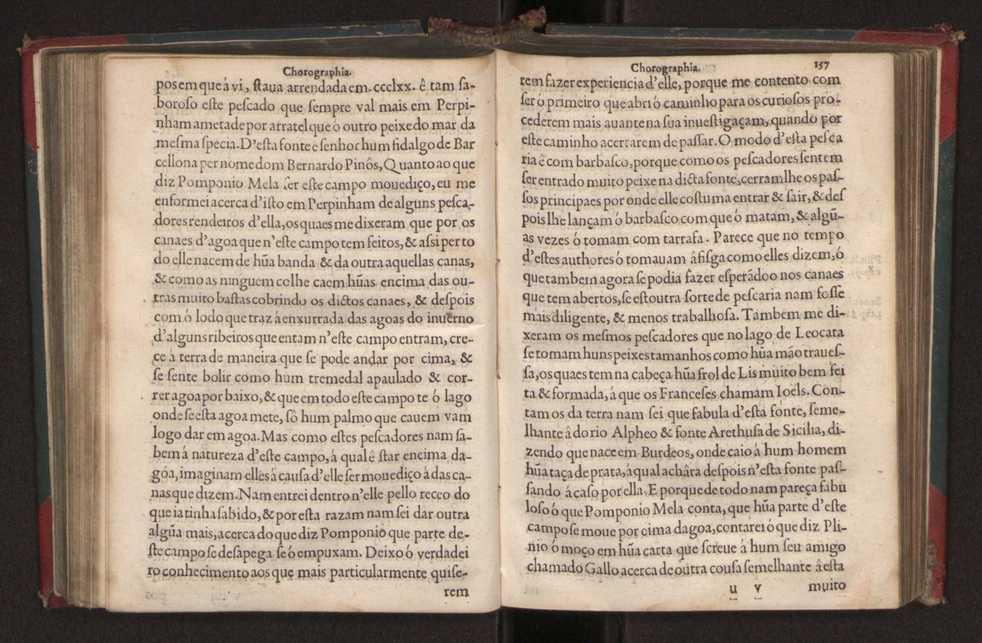 Chorographia.
pos em que á vi, staua arrendada em. ccclxx. ê tam sa-
boroso este pescado que sempre val mais em Perpi-
nham ametade por arratel que o outro peixe do mar da
mesma specia. D'esta fonte e senhor hum fidalgo de Bar
cellona per nome dom Bernardo Pinôs, Quanto ao que
diz Pomponio Mela ser este campo mouediço, eu me
enformei acerca d'isto em Perpinham de alguns pesca-
dores rendeiros d'ella, os quaes me dixeram que por os
canaes d'agoa que n'este campo tem feitos, & assi per to
do elle nacem de hũa banda & da outra aquellas canas,
& como as ninguem colhe caem hũas encima das ou-
tras muito bastas cobrindo os dictos canaes, & despois
com ó lodo que traz á enxurrada das agoas do inuerno
d'alguns ribeiros que entam n'este campo entram, cre-
ce á terra de maneira que se pode andar por cima, &
se sente bolir como hum tremedal apaulado & cor-
rer agoa por baixo, & que em todo este campo te ó lago
onde se esta agoa mete, só hum palmo que cauem vam
logo dar em agoa. Mas como estes pescadores nam sa-
bem á natureza d'este campo, á qual ê star encima da-
góa, imaginam elles á causa d'elle ser mouediço á das ca-
nas que dizem. Nam entrei dentro n'elle pello receo do
que ia tinha sabido, & por esta razam nam sei dar outra
algũa mais, acerca do que diz Pomponio que parte de-
ste campo se desapega se ó empuxam. Deixo ó verdadei
ro conhecimento aos que mais particularmente quise-
rem
Chorographia.
157
rem fazer experiencia d'elle, porque me contento com
ser ó primeiro que abri ó caminho para os curiosos pro-
cederem mais auante na sua inuestigaçam, quando por
este caminho acertarem de passar. O modo d'esta pesca
ria ê com barbasco, porque como os pescadores sentem
ser entrado muito peixe na dicta fonte, cerram lhe os pas-
sos principaes por onde elle costuma entrar & sair, & des
pois lhe lançam ó barbasco com que ó matam, & algũ-
as vezes ó tomam com tarrafa. Parece que no tempo
d'estes authores ó tomauam á fisga como elles dizem, ó
que tambem agora se podia fazer esperãdoo nos canaes
que tem abertos, se estoutra sorte de pescaria nam fosse
mais diligente, & menos trabalhosa. Tambem me di-
xeram os mesmos pescadores que no lago de Leocata
se tomam huns peixes tamanhos como hũa mão traues-
sa, os quaes tem na cabeça hũa frol de Lis muito bem fei
ta & formada, á que os Franceses chamam Ioels. Con-
tam os da terra nam sei que fabula d'esta fonte, seme-
lhante â do rio Alpheo & fonte Arethusa de Sicilia, di-
zendo que nace em Burdeos, onde caio á hum homem
hũa taça de prata, á qual achára despois n'esta fonte pas-
sando á caso por ella. E porque de todo nam pareça fabu
loso ó que Pomponio Mela conta, que hũa parte d'este
campo se moue por cima dagoa, contarei ó que diz Pli-
nio ó moço em hũa carta que screue á hum seu amigo
chamado Gallo acerca de outra cousa semelhante á esta
u v
muito